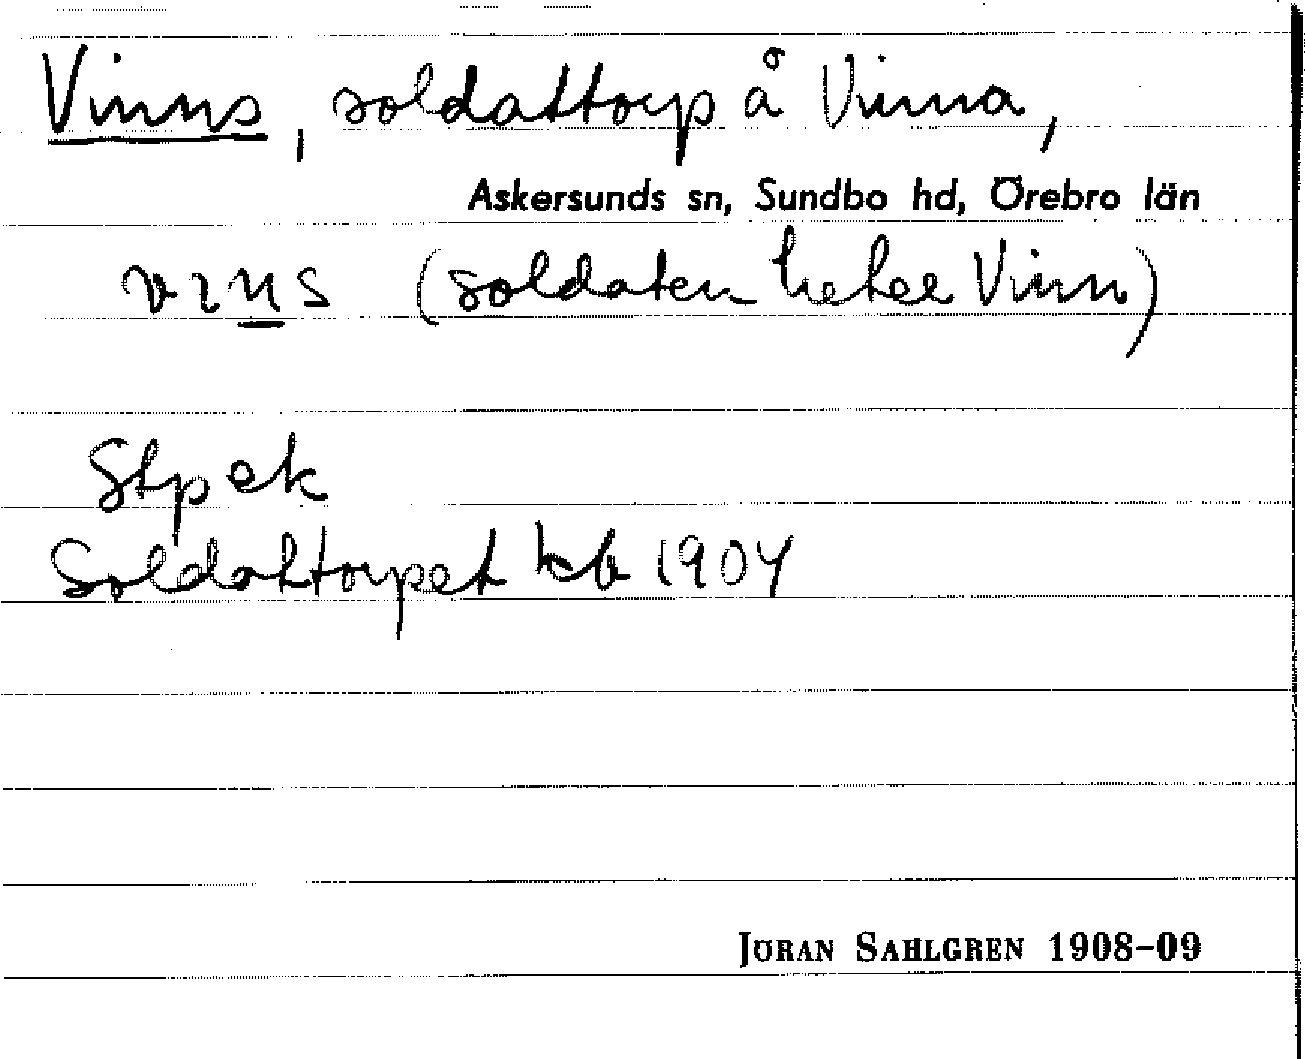 Vinns, soldattorp å Vinna,
Askersunds sn, Sundbo hd, Örebro län
vɩns (soldaten heter Vinn)
Stp ek
Soldattorpet kb 1904
JÖRAN SAHLGREN 1908–09